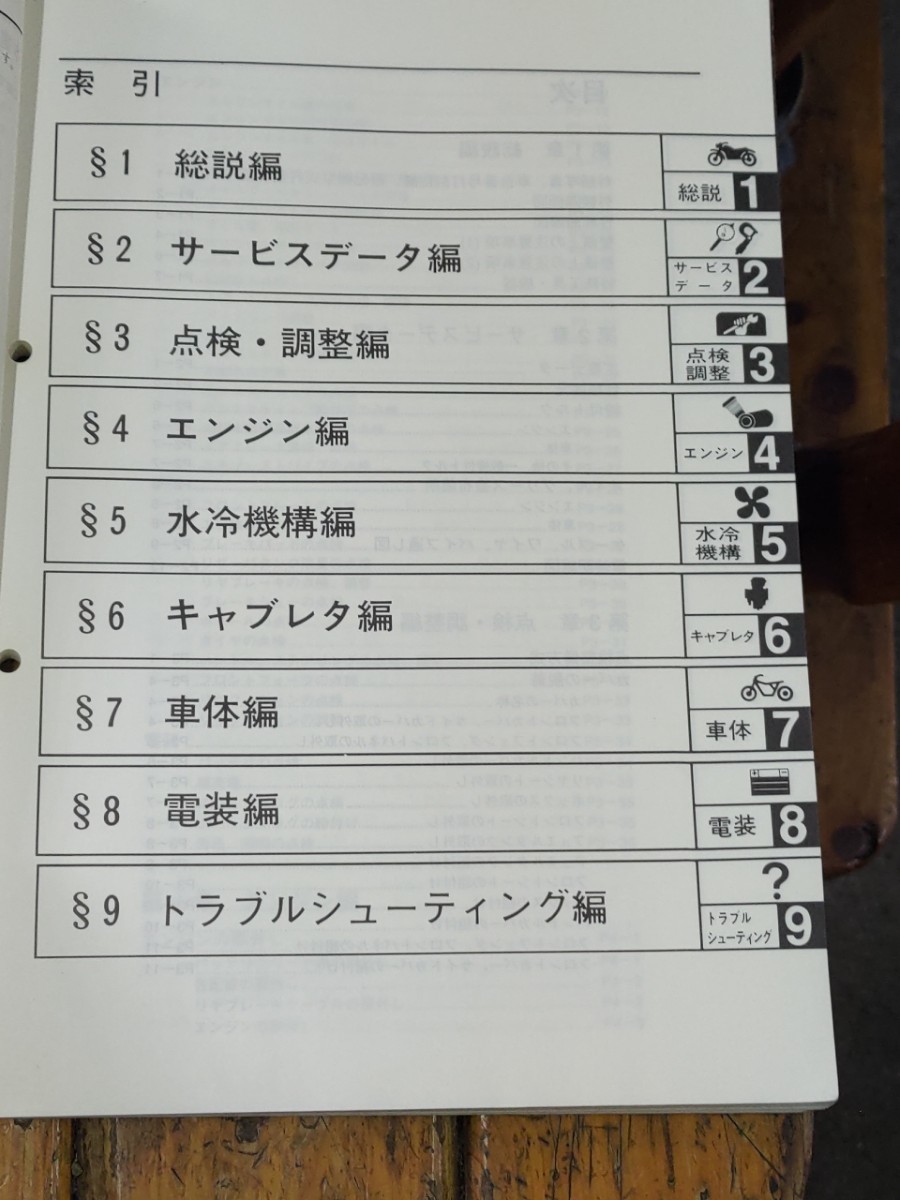 索 引
§1 総説編
総説 1
§2 サービスデータ編
サービス
データ 2
§3 点検・調整編
点検
調整 3
§4 エンジン編
エンジン 4
§5 水冷機構編
水冷
機構 5
§6 キャブレタ編
キャブレタ 6
§7 車体編
車体 7
§8 電装編
電装 8
§9 トラブルシューティング編
?
トラブル
シューティング 9